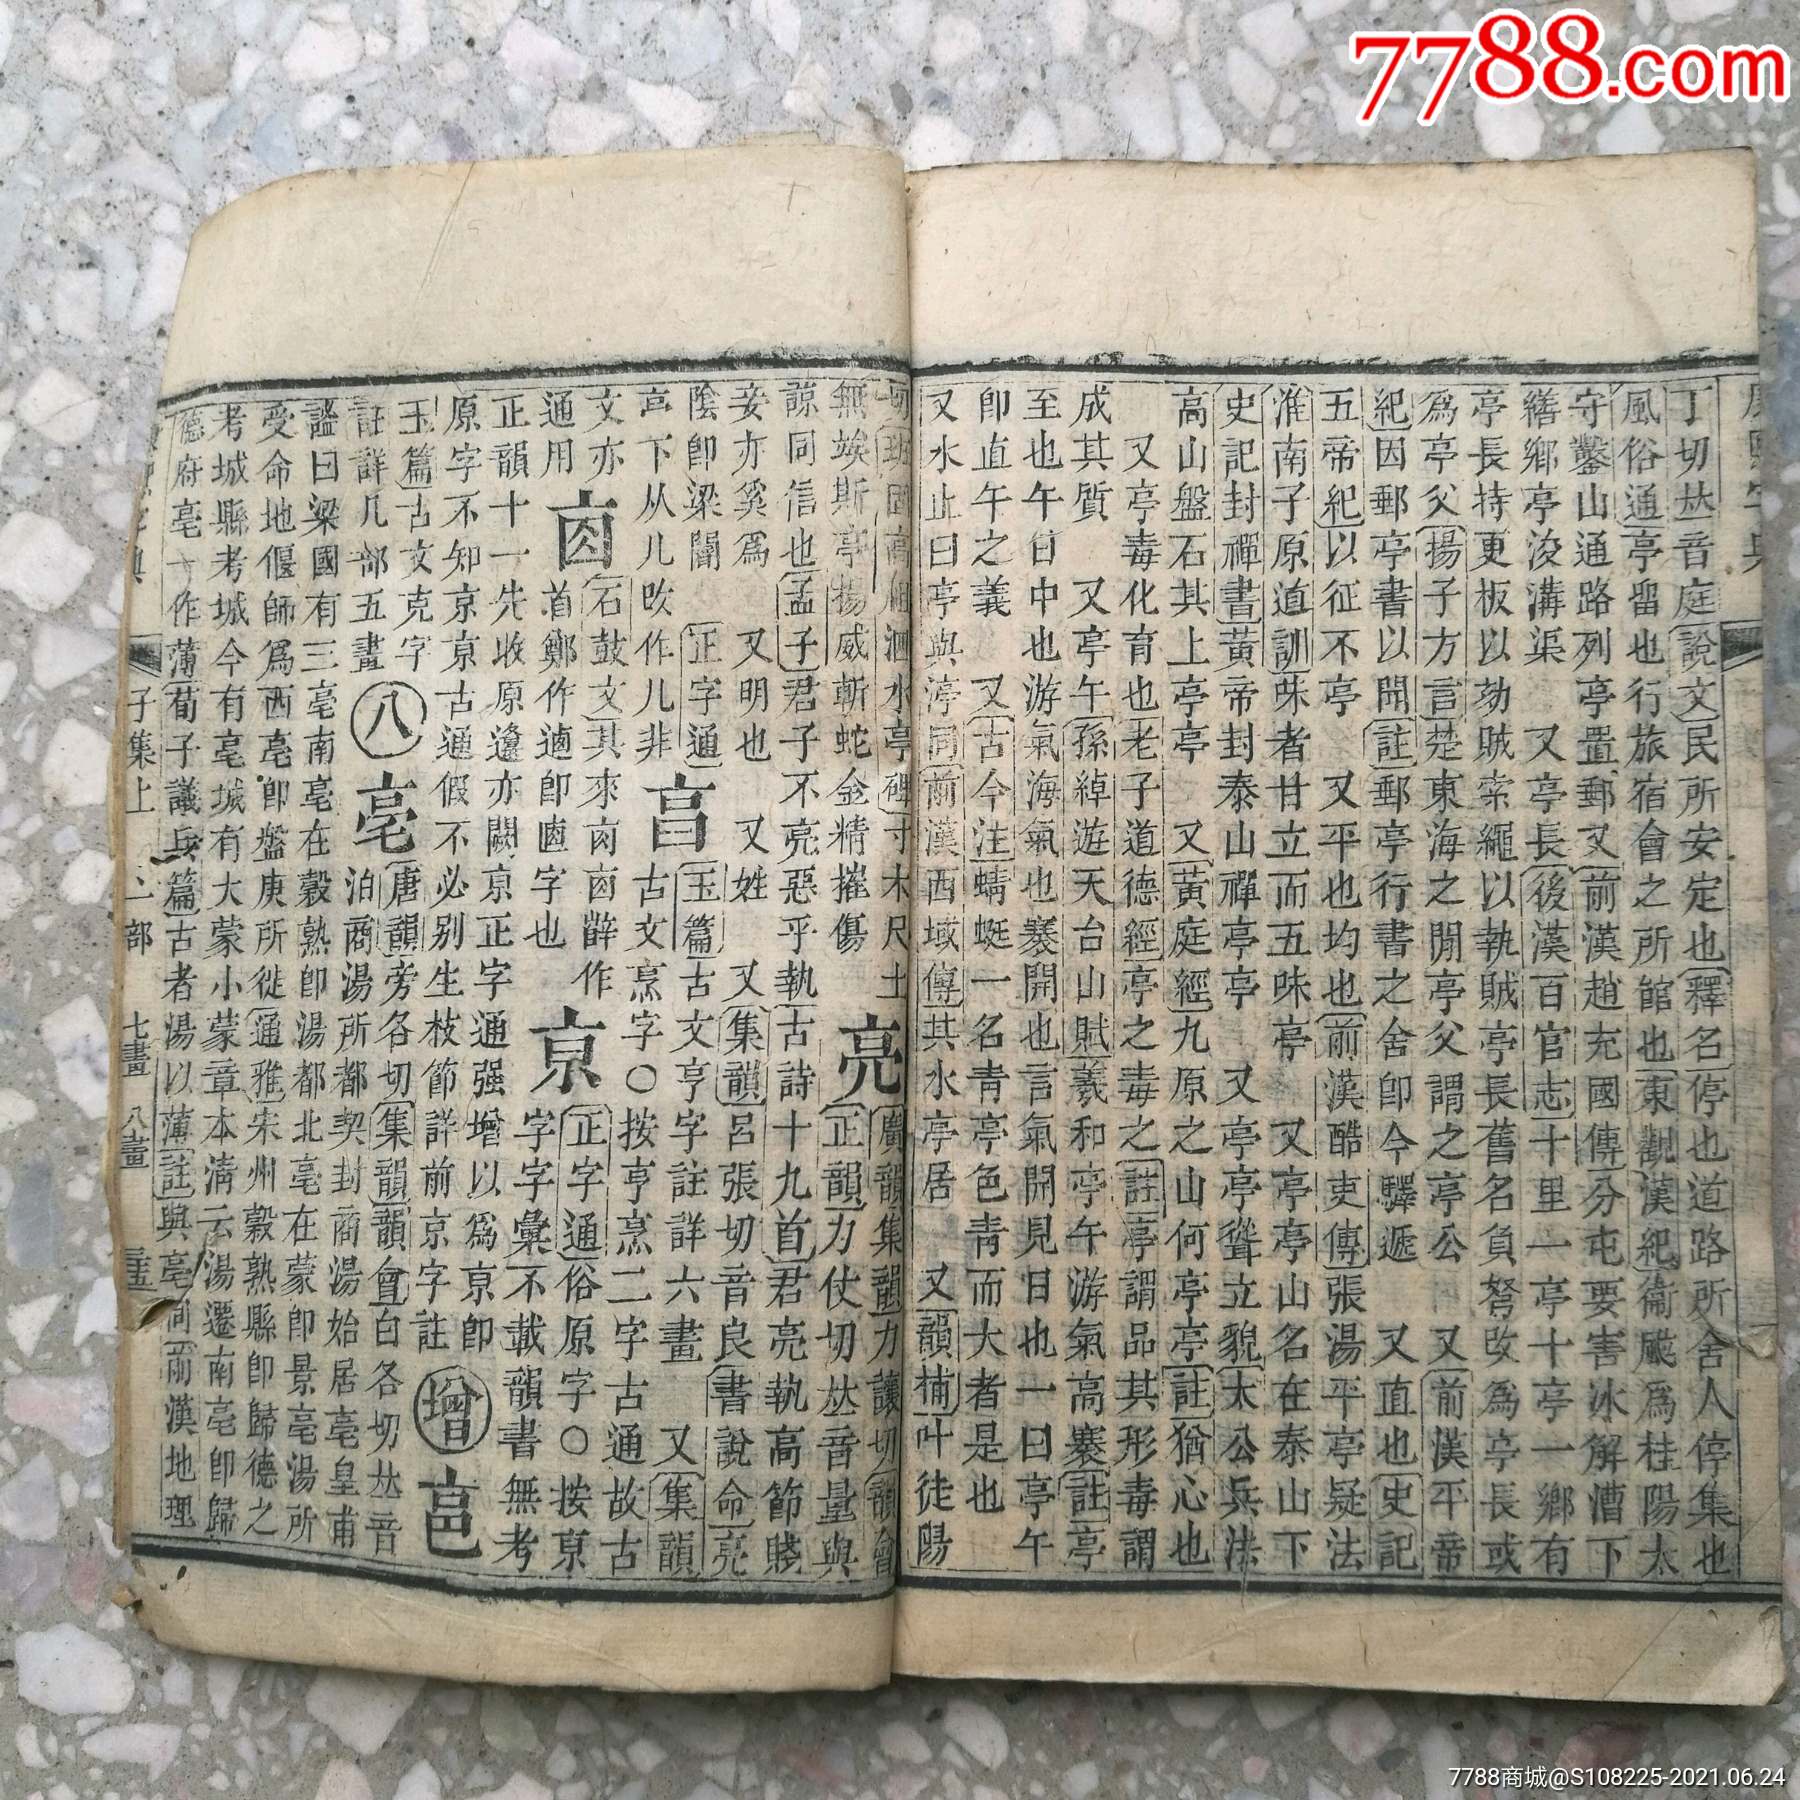 丁切𠀤音庭說文民所安定也釋名停也道路所舍人停集也
風俗通亭畱也行旅宿會之所館也東觀漢紀衞颯爲桂陽太
守鑿山通路列亭置郵又前漢趙充國傳分屯要害冰解漕下
繕鄉亭浚溝渠 又亭長後漢百官志十里一亭十亭一鄉有
亭長持更板以劾賊索繩以執賊亭長舊名負弩改爲亭長或
爲亭父揚子方言楚東海之閒亭父謂之亭公 又前漢平帝
紀因郵亭書以聞註郵亭行書之舍卽今驛遞 又直也史記
五帝紀以征不亭 又平也均也前漢酷吏傳張湯平亭疑法
淮南子原道訓味者甘立而五味亭 又亭亭山名在泰山下
史記封禪書黃帝封泰山禪亭亭 又亭亭聳立貌太公兵法
高山盤石其上亭亭 又黃庭經九原之山何亭亭註猶心也
又亭毒化育也老子道德經亭之毒之註亭謂品其形毒謂
成其質 又亭午孫綽遊天台山賦羲和亭午游氣高褰註亭
至也午日中也游氣海氣也褰開也言氣開見日也一曰亭午
卽直午之義 又古今注蜻蜓一名青亭色青而大者是也
又水止曰亭與渟同前漢西域傳其水亭居 又韻補叶徒陽
切班固高祖泗水亭碑寸木尺土
無竢斯亭揚威斬蛇金精摧傷
亮
廣韻集韻力讓切韻會
正韻力仗切𠀤音量與
諒同信也孟子君子不亮惡乎執古詩十九首君亮執高節賤
妾亦奚爲 又明也 又姓 又集韻呂張切音良書說命亮
陰卽梁闇 正字通
亯下从儿改作儿非
亯
玉篇古文亨字註詳六畫 又集韻
古文烹字○按亨烹二字古通故古
文亦
通用
石鼓文其來卥卥辥作
首鄭作逌卽卣字也
亰
正字通俗原字○按亰
字字彙不載韻書無考
正韻十一先收原邍亦闕亰正字通强增以爲亰卽
原字不知京亰古通假不必别生枝節詳前京字註
增
玉篇古文克字
註詳儿部五畫
八
亳
唐韻旁各切集韻韻會白各切𠀤音
泊商湯所都契封商湯始居亳皇甫
謐曰梁國有三亳南亳在穀熟卽湯都北亳在蒙卽景亳湯所
受命地偃師爲西亳卽盤庚所徙通雅宋州穀熟縣卽歸德之
考城縣考城今有亳城有大蒙小蒙章本淸云湯遷南亳卽歸
德府亳一作薄荀子議兵篇古者湯以薄註與亳同前漢地理
子集上 亠部 七畫 八畫
7788.com
7788商城@S108225-2021.06.24